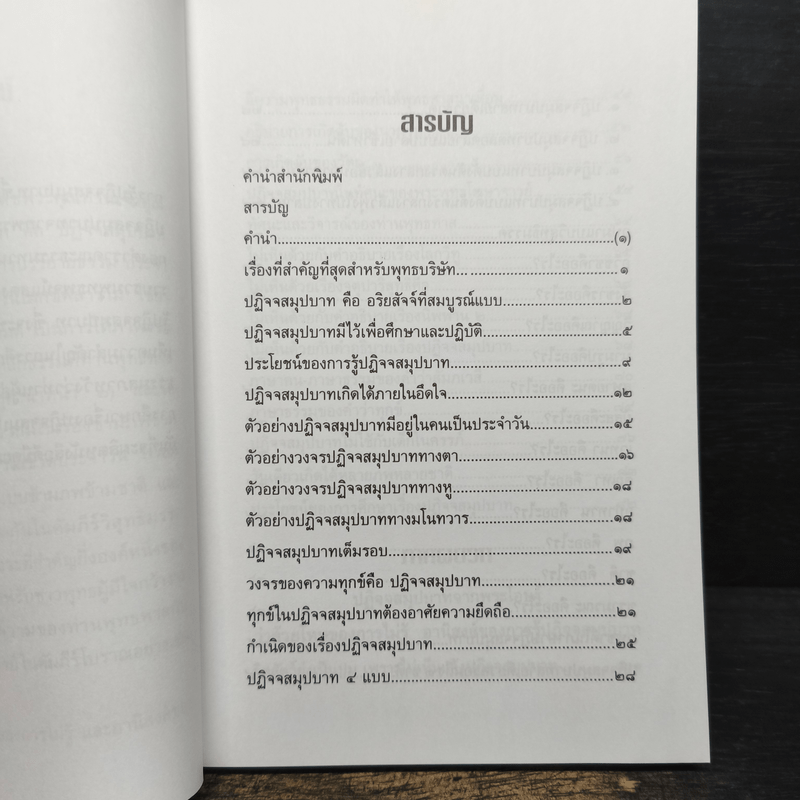 สารบัญ
คำนำสำนักพิมพ์
สารบัญ
คำนำ.....................................................................(๑)
เรื่องที่สำคัญที่สุดสำหรับพุทธบริษัท.................................๑
ปฏิจจสมุปบาท คือ อริยสัจจ์ที่สมบูรณ์แบบ..........................๒
ปฏิจจสมุปบาทมีไว้เพื่อศึกษาและปฏิบัติ..............................๕
ประโยชน์ของการรู้ปฏิจจสมุปบาท....................................๙
ปฏิจจสมุปบาทเกิดได้ภายในอึดใจ..................................๑๒
ตัวอย่างปฏิจจสมุปบาทมีอยู่ในคนเป็นประจำวัน.................๑๕
ตัวอย่างวงจรปฏิจจสมุปบาททางตา................................๑๖
ตัวอย่างวงจรปฏิจจสมุปบาททางหู.................................๑๘
ตัวอย่างปฏิจจสมุปบาททางมโนทวาร..............................๑๘
ปฏิจจสมุปบาทเต็มรอบ..............................................๑๙
วงจรของความทุกข์คือ ปฏิจจสมุปบาท...........................๒๑
ทุกข์ในปฏิจจสมุปบาทต้องอาศัยความยึดถือ.....................๒๑
กำเนิดของเรื่องปฏิจจสมุปบาท.....................................๒๕
ปฏิจจสมุปบาท ๔ แบบ..............................................๒๘